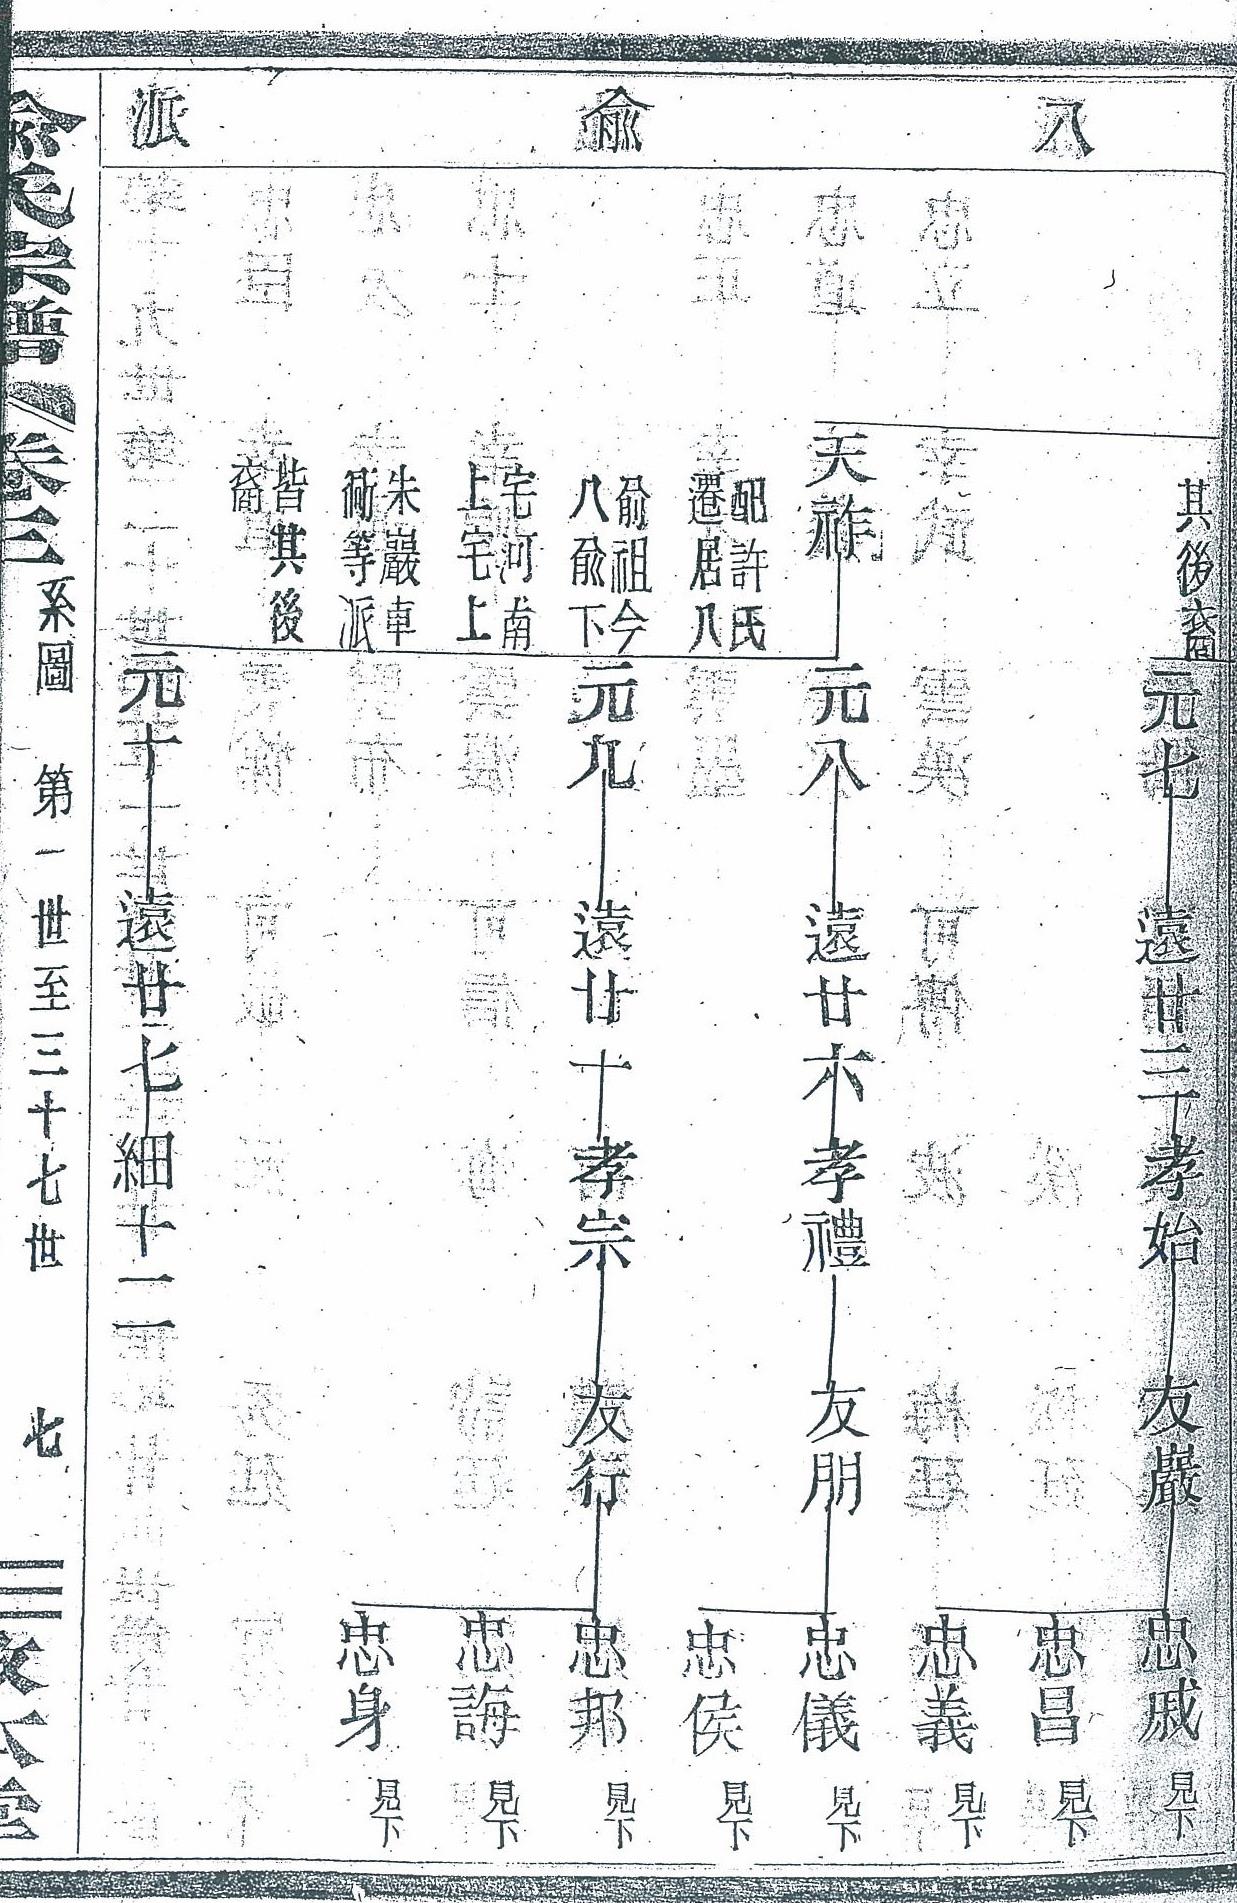 八俞派
其後裔
元七
遠廿三
孝始
友巖
忠戚 見下
忠昌 見下
忠義 見下
天祚
配許氏
遷居八
俞祖今
八俞下
宅河南
上宅上
朱巖車
衕等派
皆其後
裔
元八
遠廿六
孝禮
友朋
忠儀 見下
忠侯 見下
元九
遠廿十
孝宗
友行
忠邦 見下
忠誨 見下
忠身 見下
元十
遠廿七
細十二
俞氏宗譜 卷三 系圖 第一世至三十七世 七